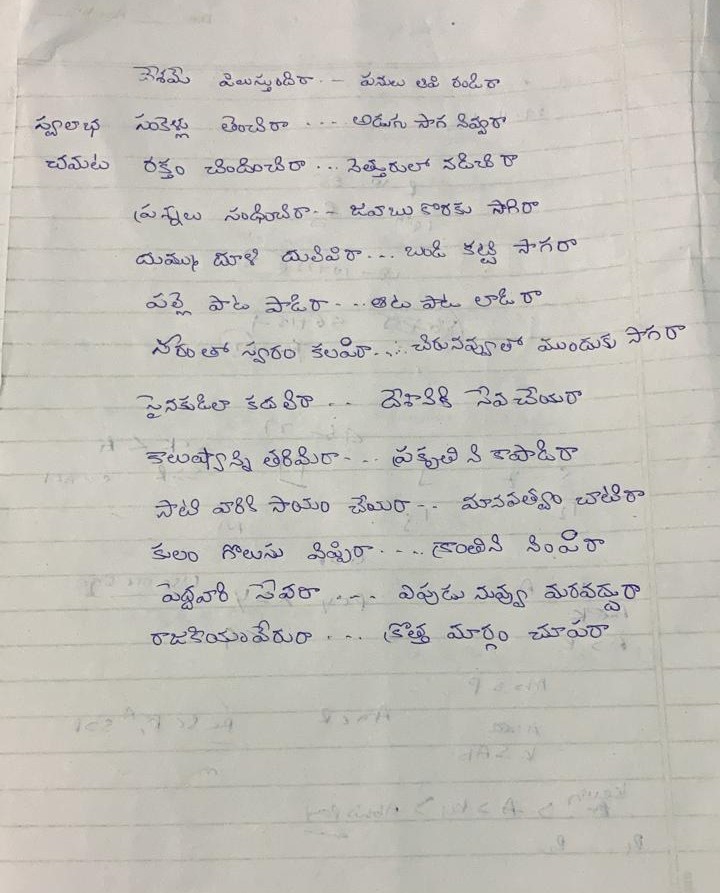 దేశమే పిలుస్తుందిరా -- పనులు ఆపి రండిరా
స్వలాభ సంకెళ్లు తెంచిరా .... అడుగు సాగ నివ్వరా
చమట రక్తం చిందించిరా ... నెత్తురులో నడిచిరా
ప్రశ్నలు సంధించిరా -- జవాబు కొరకు సాగిరా
దుమ్ము దూళి దులిపిరా ... బండి కట్టి సాగరా
పల్లె పాట పాడిరా -... ఆట పాట లాడిరా
స్వరంతో స్వరం కలపిరా .... చిరునవ్వుతో ముందుకు సాగరా
సైనకుడిలా కదలిరా .. దేశానికి సేవ చేయరా
కాలుష్యాన్ని తరిమిరా -... ప్రకృతి ని కాపాడిరా
సాటి వారికి సాయం చేయరా -.. మానవత్వం చాటిరా
కులం గొలుసు విప్పిరా -.... క్రాంతిని నింపిరా
పెద్దవారి సేవరా .... ఎపుడు నువ్వు మరవద్దురా
రాజకీయంవేరురా ... క్రొత్త మార్గం చూపరా